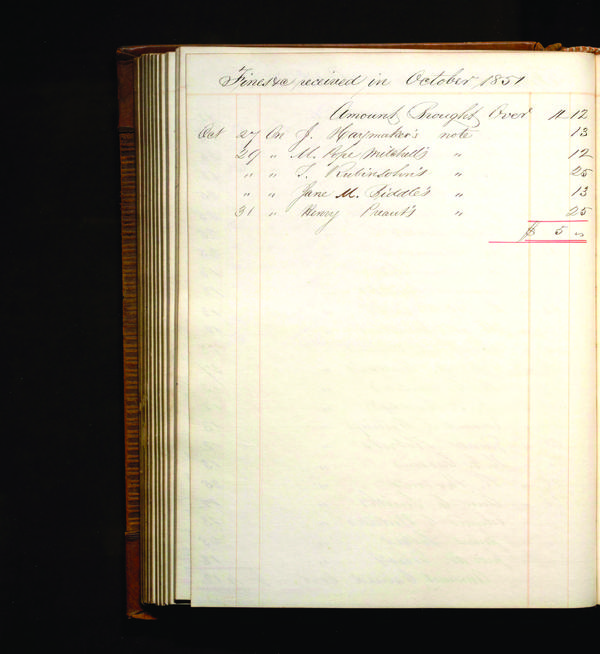 Fines &c received in October, 1851
Amount Brought Over 4 12
Oct 27 On J. Haymaker's note 13
29 " M. Pope Mitchell's " 12
" " S. Rubinsohn's " 25
" " Jane M. Biddle's " 13
31 " Henry " 25
$ 5 "